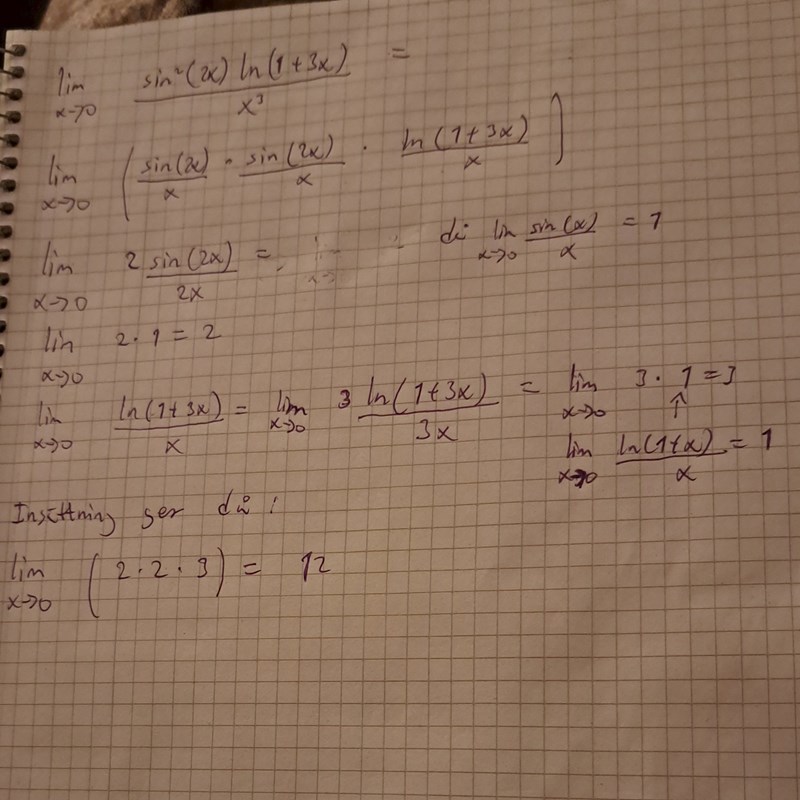 lim x→0 sin²(2x) ln(1+3x) / x³ =
lim x→0 ( sin(2x)/x · sin(2x)/x · ln(1+3x)/x )
lim x→0 2 sin(2x)/2x = då lim x→0 sin(x)/x = 1
lim x→0 2·1 = 2
lim x→0 ln(1+3x)/x = lim x→0 3 ln(1+3x)/3x = lim x→0 3·1 = 3
↑
lim x→0 ln(1+x)/x = 1
Insättning ger då:
lim x→0 (2·2·3) = 12